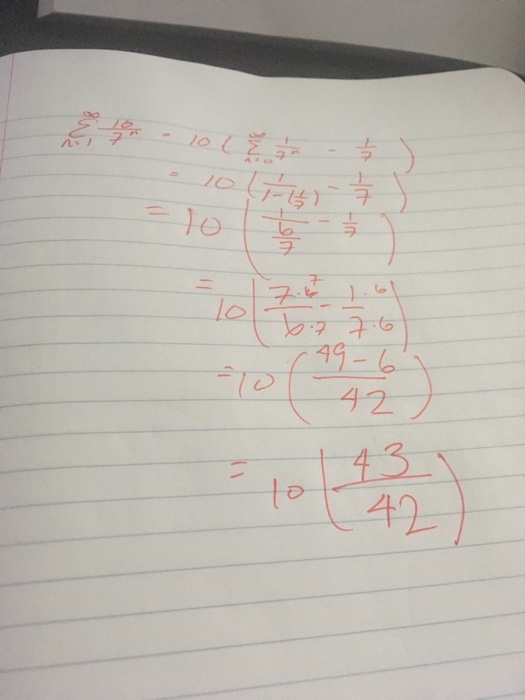 ∞∑n=1 10/7ⁿ = 10 ( ∞∑n=0 1/7ⁿ - 1/7 )
= 10 ( 1/(1-(1/7)) - 1/7 )
= 10 ( 1/(6/7) - 1/7 )
= 10 ( 7·7/6·7 - 1·6/7·6 )
= 10 ( (49-6)/42 )
= 10 ( 43/42 )